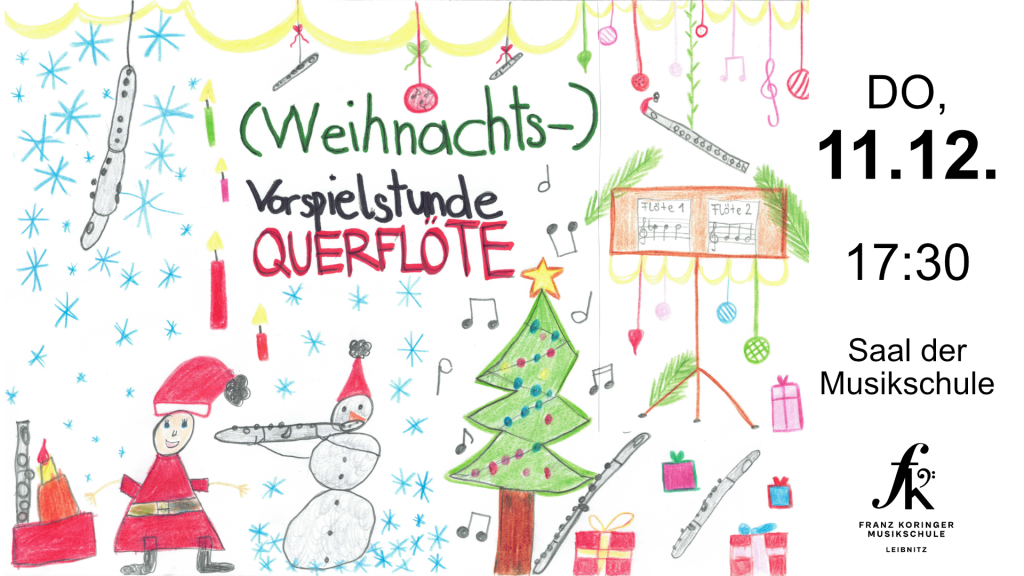 (Weihnachts-)
Vorspielstunde
QUERFLÖTE
Flöte 1
Flöte 2
DO,
11.12.
17:30
Saal der
Musikschule
fk
FRANZ KORINGER
MUSIKSCHULE
LEIBNITZ